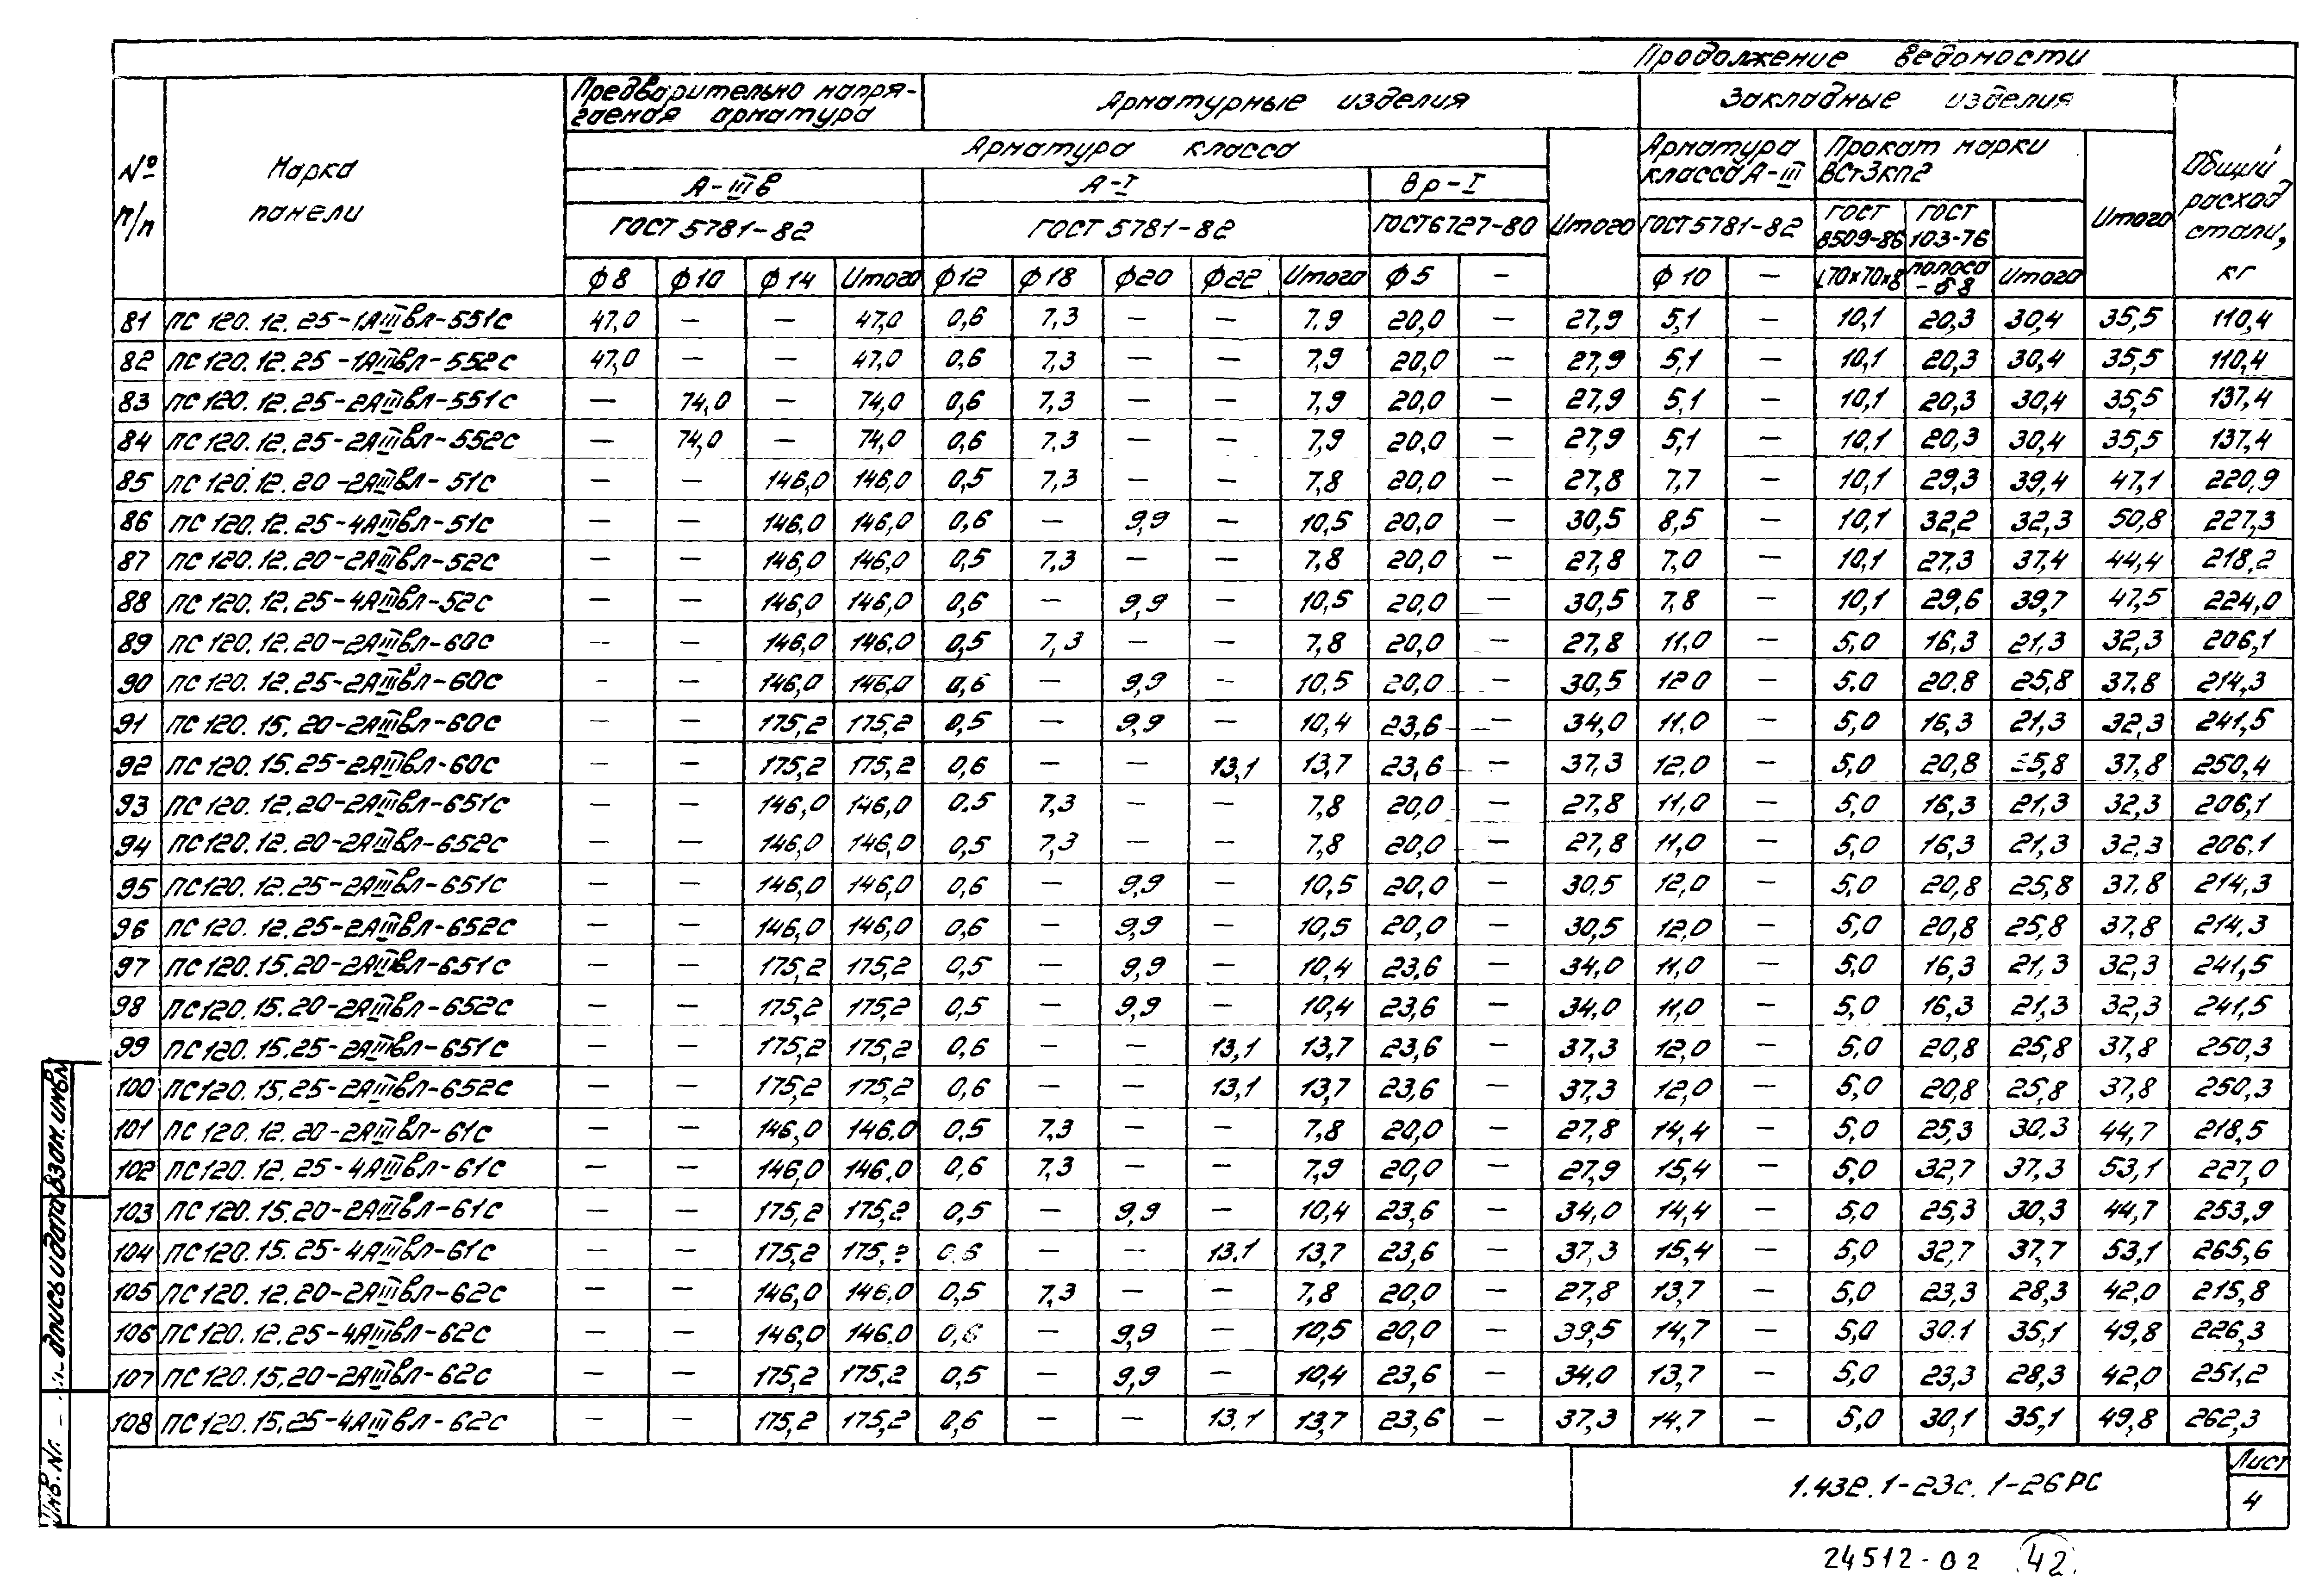 Продолжение ведомости
№ п/п
Марка панели
Предварительно напрягаемая арматура
Арматурные изделия
Закладные изделия
Общий расход стали, кг
Арматура класса
Итого
Арматура класса А-III
Прокат марки ВСт3кп2
Итого
А-IIIв
А-I
Вр-I
ГОСТ 5781-82
ГОСТ 5781-82
ГОСТ 6727-80
ГОСТ 5781-82
ГОСТ 8509-86
ГОСТ 103-76
Ф8 Ф10 Ф14 Итого Ф12 Ф18 Ф20 Ф22 Итого Ф5 — Ф10 — L70×70×8 полоса -δ8 Итого
81 ПС 120.12.25-1АIIIвл-551с 47,0 — — 47,0 0,6 7,3 — — 7.9 20,0 — 27,9 5,1 — 10,1 20,3 30,4 35,5 110,4
82 ПС 120.12.25-1АIIIвл-552с 47,0 — — 47,0 0,6 7,3 — — 7,9 20,0 — 27,9 5,1 — 10,1 20,3 30,4 35,5 110,4
83 ПС 120.12.25-2АIIIвл-551с — 74,0 — 74,0 0,6 7,3 — — 7,9 20,0 — 27,9 5,1 — 10,1 20,3 30,4 35,5 137,4
84 ПС 120.12.25-2АIIIвл-552с — 74,0 — 74,0 0,6 7,3 — — 7,9 20,0 — 27,9 5,1 — 10,1 20,3 30,4 35,5 137,4
85 ПС 120.12.20-2АIIIвл-51с — — 146,0 146,0 0,5 7,3 — — 7,8 20,0 — 27,8 7,7 — 10,1 29,3 39,4 47,1 220,9
86 ПС 120.12.25-4АIIIвл-51с — — 146,0 146,0 0,6 — 9,9 — 10,5 20,0 — 30,5 8,5 — 10,1 32,2 32,3 50,8 227,3
87 ПС 120.12.20-2АIIIвл-52с — — 146,0 146,0 0,5 7,3 — — 7,8 20,0 — 27,8 7,0 — 10,1 27,3 37,4 44,4 218,2
88 ПС 120.12.25-4АIIIвл-52с — — 146,0 146,0 0,6 — 9,9 — 10,5 20,0 — 30,5 7,8 — 10,1 29,6 39,7 47,5 224,0
89 ПС 120.12.20-2АIIIвл-60с — — 146,0 146,0 0,5 7,3 — — 7,8 20,0 — 27,8 11,0 — 5,0 16,3 21,3 32,3 206,1
90 ПС 120.12.25-2АIIIвл-60с — — 146,0 146,0 0,6 — 9,9 — 10,5 20,0 — 30,5 12 0 — 5,0 20,8 25,8 37,8 214,3
91 ПС 120.15.20-2АIIIвл-60с — — 175,2 175,2 0,5 — 9,9 — 10,4 23,6 — 34,0 11,0 — 5,0 16,3 21,3 32,3 241,5
92 ПС 120.15.25-2АIIIвл-60с — — 175,2 175,2 0,6 — — 13,1 13,7 23,6 — 37,3 12,0 — 5,0 20,8 25,8 37,8 250,4
93 ПС 120.12.20-2АIIIвл-651с — — 146,0 146,0 0,5 7,3 — — 7,8 20,0 — 27,8 11,0 — 5,0 16,3 21,3 32,3 206,1
94 ПС 120.12.20-2АIIIвл-652с — — 146,0 146,0 0,5 7,3 — — 7,8 20,0 — 27,8 11,0 — 5,0 16,3 21,3 32,3 206,1
95 ПС 120.12.25-2АIIIвл-651с — — 146,0 146,0 0,6 — 9,9 — 10,5 20,0 — 30,5 12,0 — 5,0 20,8 25,8 37,8 214,3
96 ПС 120.12.25-2АIIIвл-652с — — 146,0 146,0 0,6 — 9,9 — 10,5 20,0 — 30,5 12,0 — 5,0 20,8 25,8 37,8 214,3
97 ПС 120.15.20-2АIIIвл-651с — — 175,2 175,2 0,5 — 9,9 — 10,4 23,6 — 34,0 11,0 — 5,0 16,3 21,3 32,3 241,5
98 ПС 120.15.20-2АIIIвл-652с — — 175,2 175,2 0,5 — 9,9 — 10,4 23,6 — 34,0 11,0 — 5,0 16,3 21,3 32,3 241,5
99 ПС 120.15.25-2АIIIвл-651с — — 175,2 175,2 0,6 — — 13,1 13,7 23,6 — 37,3 12,0 — 5,0 20,8 25,8 37,8 250,3
100 ПС 120.15.25-2АIIIвл-652с — — 175,2 175,2 0,6 — — 13,1 13,7 23,6 — 37,3 12,0 — 5,0 20,8 25,8 37,8 250,3
101 ПС 120.12.20-2АIIIвл-61с — — 146,0 146,0 0,5 7,3 — — 7,8 20,0 — 27,8 14,4 — 5,0 25,3 30,3 44,7 218,5
102 ПС 120.12.25-4АIIIвл-61с — — 146,0 146,0 0,6 7,3 — — 7,9 20,0 — 27,9 15,4 — 5,0 32,7 37,3 53,1 227,0
103 ПС 120.15.20-2АIIIвл-61с — — 175,2 175,2 0,5 — 9,9 — 10,4 23,6 — 34,0 14,4 — 5,0 25,3 30,3 44,7 253,9
104 ПС 120.15.25-4АIIIвл-61с — — 175,2 175,2 0,6 — — 13,1 13,7 23,6 — 37,3 15,4 — 5,0 32,7 37,7 53,1 265,6
105 ПС 120.12.20-2АIIIвл-62с — — 146,0 146,0 0,5 7,3 — — 7,8 20,0 — 27,8 13,7 — 5,0 23,3 28,3 42,0 215,8
106 ПС 120.12.25-4АIIIвл-62с — — 146,0 146,0 0,6 — 9,9 — 10,5 20,0 — 39,5 14,7 — 5,0 30,1 35,1 49,8 226,3
107 ПС 120.15.20-2АIIIвл-62с — — 175,2 175,2 0,5 — 9,9 — 10,4 23,6 — 34,0 13,7 — 5,0 23,3 28,3 42,0 251,2
108 ПС 120.15.25-4АIIIвл-62с — — 175,2 175,2 0,6 — — 13,1 13,7 23,6 — 37,3 14,7 — 5,0 30,1 35,1 49,8 262,3
Взам. инв.N
дпись и дата
Инв. N
1.432.1-23с.1-26РС
Лист
4
24512-02 42